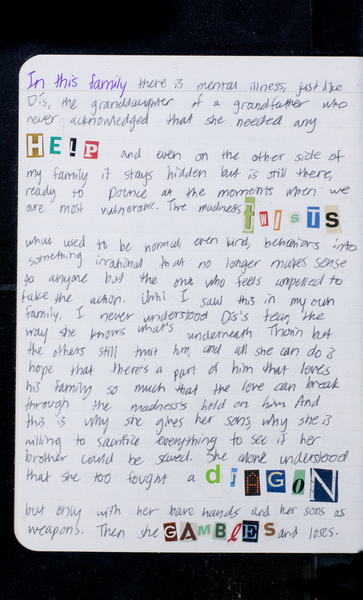 In this family there is mental illness, just like
Dis, the granddaughter of a grandfather who
never acknowledged that she needed any
HELP and even on the other side of
my family it stays hidden but is still there,
ready to pounce at the moments when we
are most vulnerable. The madness TWISTS
what used to be normal, even kind, behaviors into
something irrational that no longer makes sense
to anyone but the one who feels compelled to
take the action. Until I saw this in my own
family, I never understood Dis's fear, the
way she knows what's underneath Thorin but
the others still trust him, and all she can do is
hope that there's a part of him that loves
his family so much that the love can break
through the madness's hold on him. And
this is why she gives her sons, why she is
willing to sacrifice everything to see if her
brother could be saved. She alone understood
that she too fought a dragon
but only with her bare hands and her sons as
weapons. Then she GAMBlES and loses.